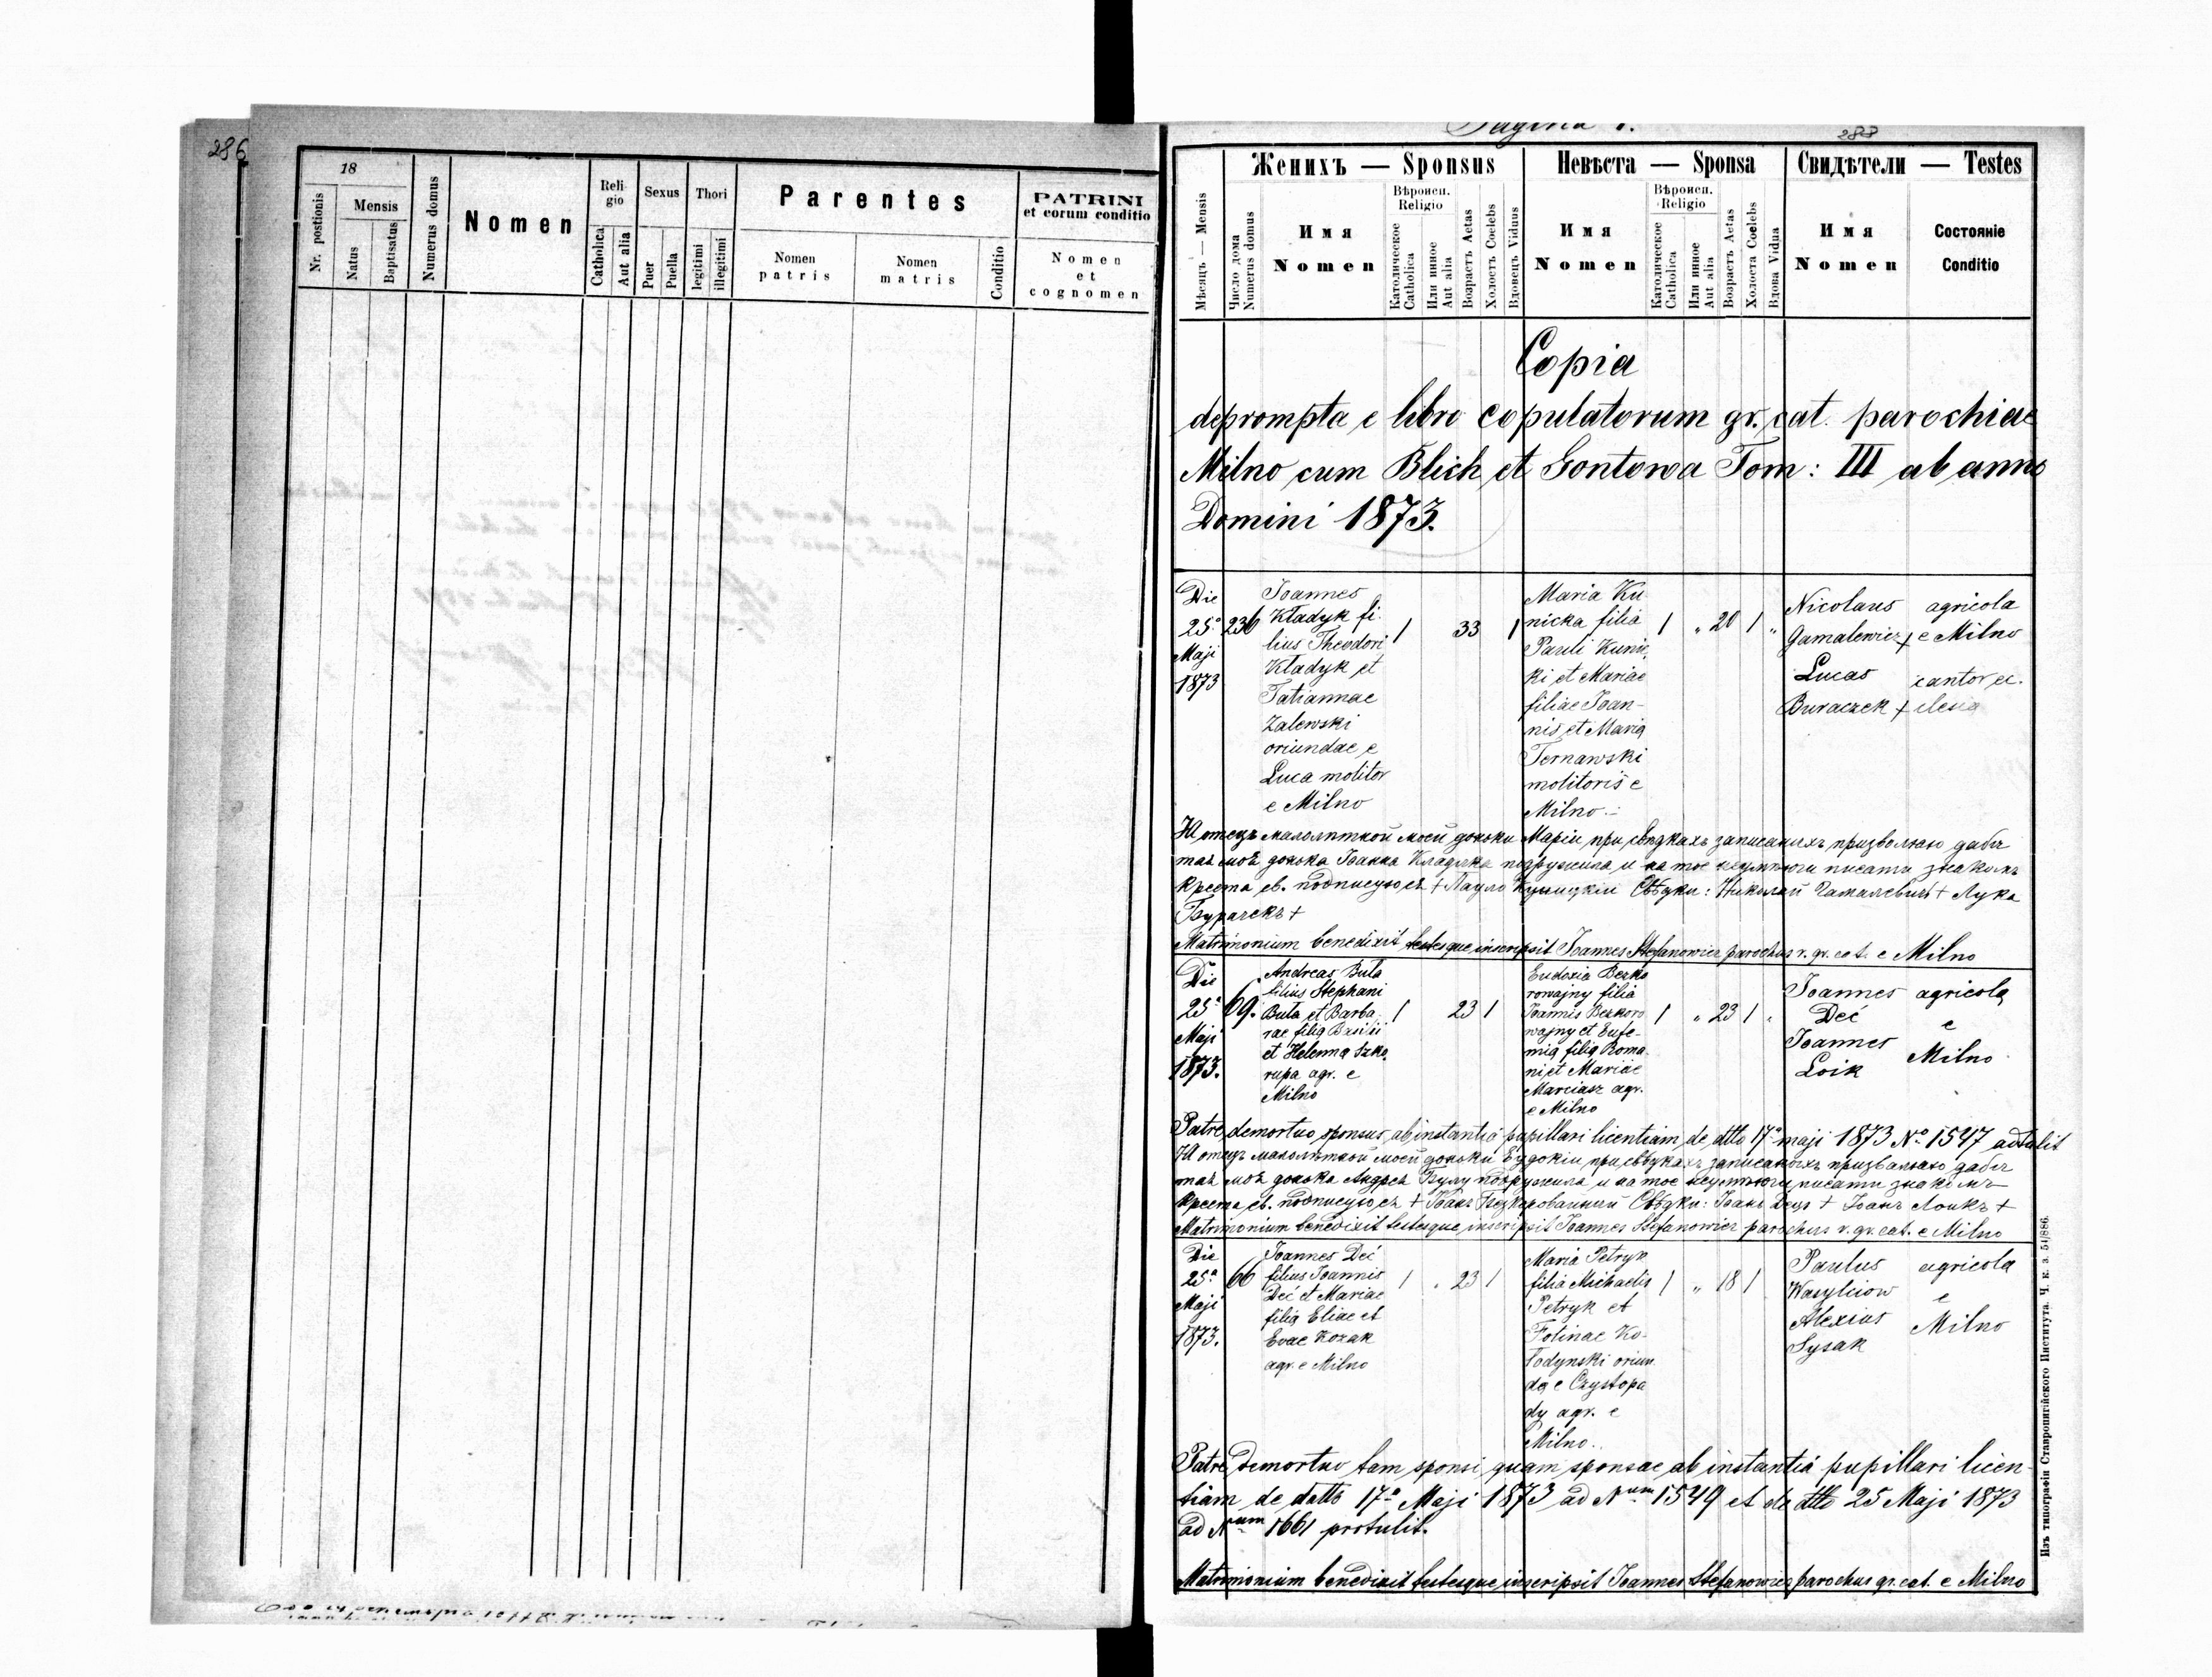 286
18
Nr. postionis
Mensis
Natus
Baptisatus
Numerus domus
Nomen
Religio
Catholica
Aut alia
Sexus
Puer
Puella
Thori
legitimi
illegitimi
Parentes
Nomen patris
Nomen matris
Conditio
PATRINI
et eorum conditio
Nomen
et
cognomen
Pagina 1.
288
Женихъ — Sponsus
Невѣста — Sponsa
Свидѣтели — Testes
Мѣсяцъ — Mensis
Число дома
Numerus domus
Имя
Nomen
Вѣроисп.
Religio
Католическое
Catholica
Или инное
Aut alia
Возрастъ Aetas
Холостъ Coelebs
Вдовецъ Viduus
Имя
Nomen
Вѣроисп.
Religio
Католическое
Catholica
Или инное
Aut alia
Возрастъ Aetas
Холоста Coelebs
Вдова Vidua
Имя
Nomen
Состояніе
Conditio
Copia
deprompta e libro copulatorum gr. cat. parochiae
Milno cum Blich et Gontowa Tom: III ab anno
Domini 1873.
Die
25ª
Maji
1873
236
Joannes
Kładyk fi-
lius Theodori
Kładyk et
Tatiannae
Zalewski
oriundae e
Luca molitor
e Milno
1
33
1
Maria Ku
nicka filia
Pauli Kunic
ki et Mariae
filiae Joan-
nis et Maria
Ternawski
molitoris e
Milno.
1 „ 20 1 „
Nicolaus
Gamalewicz +
Lucas
Buraczek +
agricola
e Milno
cantor ec
clesia
Я отецъ малолѣткой моей доньки Маріи при свѣдкахъ записаныхъ призволяю дабы
тая моя донька Іоанна Кладыка подружила и на тое неумѣючи писати знакомъ
Креста св. подписуюся + Павло Куницкій Свѣдки: Николай Гамалевичъ + Лука
Бурачекъ +
Matrimonium benedixit testesque inscripsit Joannes Stefanowicz parochus r. gr. cat. e Milno
Die
25ª
Maji
1873.
69.
Andreas Buła
filius Stephani
Buła et Barba
rae filia Basilii
et Helenna Szko
rupa agr. e
Milno
1
23 1
Eudoxia Bezko
rowajny filia
Joannis Bezkoro
wajny et Eufe-
mia filia Roma
ni et Mariae
Marciasz agr.
e Milno
1 „ 23 1 „
Joannes
Deć
Joannes
Loik
agricola
e
Milno
Patre demortuo, sponsus ab instantiâ pupillari licentiam de dtto 17ª maji 1873 Nº 1547 adtulit
Я отецъ малолѣткой моей доньки Евдокіи при свѣдкахъ записаныхъ призваляю дабы
тая моя донька Андрея Булу подружила и на тое неумѣючи писати знакомъ
Креста св. подписуюся + Іоанъ Безкоровайный Свѣдки: Іоанъ Дець + Іоанъ Лоикъ +
Matrimonium benedixit testesque inscripsit Joannes Stefanowicz parochus r. gr. cat. e Milno
Die
25ª
Maji
1873.
66
Joannes Deć
filius Joannis
Deć et Mariae
filia Eliae et
Evae Kozak
agr. e Milno
1 „ 23 1
Maria Petryk
filia Michaelis
Petryk et
Fotinae Ko-
łodynski oriun
da e Czystopa
dy agr. e
Milno.
1 „ 18 1
Paulus
Wasylciow
Alexius
Sysak
agricola
e
Milno
Patre demortuo tam sponsi quam sponsae ab instantiâ pupillari licen-
tiam de datto 17ª Maji 1873 ad Num 1549 et de dtto 25 Maji 1873
ad Num 1661 protulit.
Matrimonium benedixit testesque inscripsit Joannes Stefanowicz parochus gr. cat. e Milno
Изъ типографіи Ставропигійского Института. Ч. к. з. 51/886.